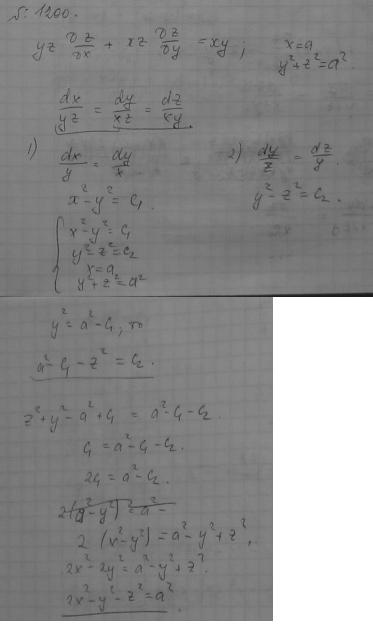 № 1200.
yz ∂z/∂x + xz ∂z/∂y = xy; x=a
y²+z²=a²
dx/yz = dy/xz = dz/xy.
1) dx/y = dy/x 2) dy/z = dz/y.
x²-y² = C₁. y²-z² = C₂.
x²-y²=C₁
y²-z²=C₂
x=a
y²+z²=a²
y² = a²-C₁, то
a²-C₁-z² = C₂.
z²+y²-a²+C₁ = a²-C₁-C₂.
C₁ = a²-C₁-C₂.
2C₁ = a²-C₂.
2(x²-y²) = a²-
2(x²-y²) = a²-y²+z²,
2x²-2y² = a²-y²+z².
2x²-y²-z² = a².